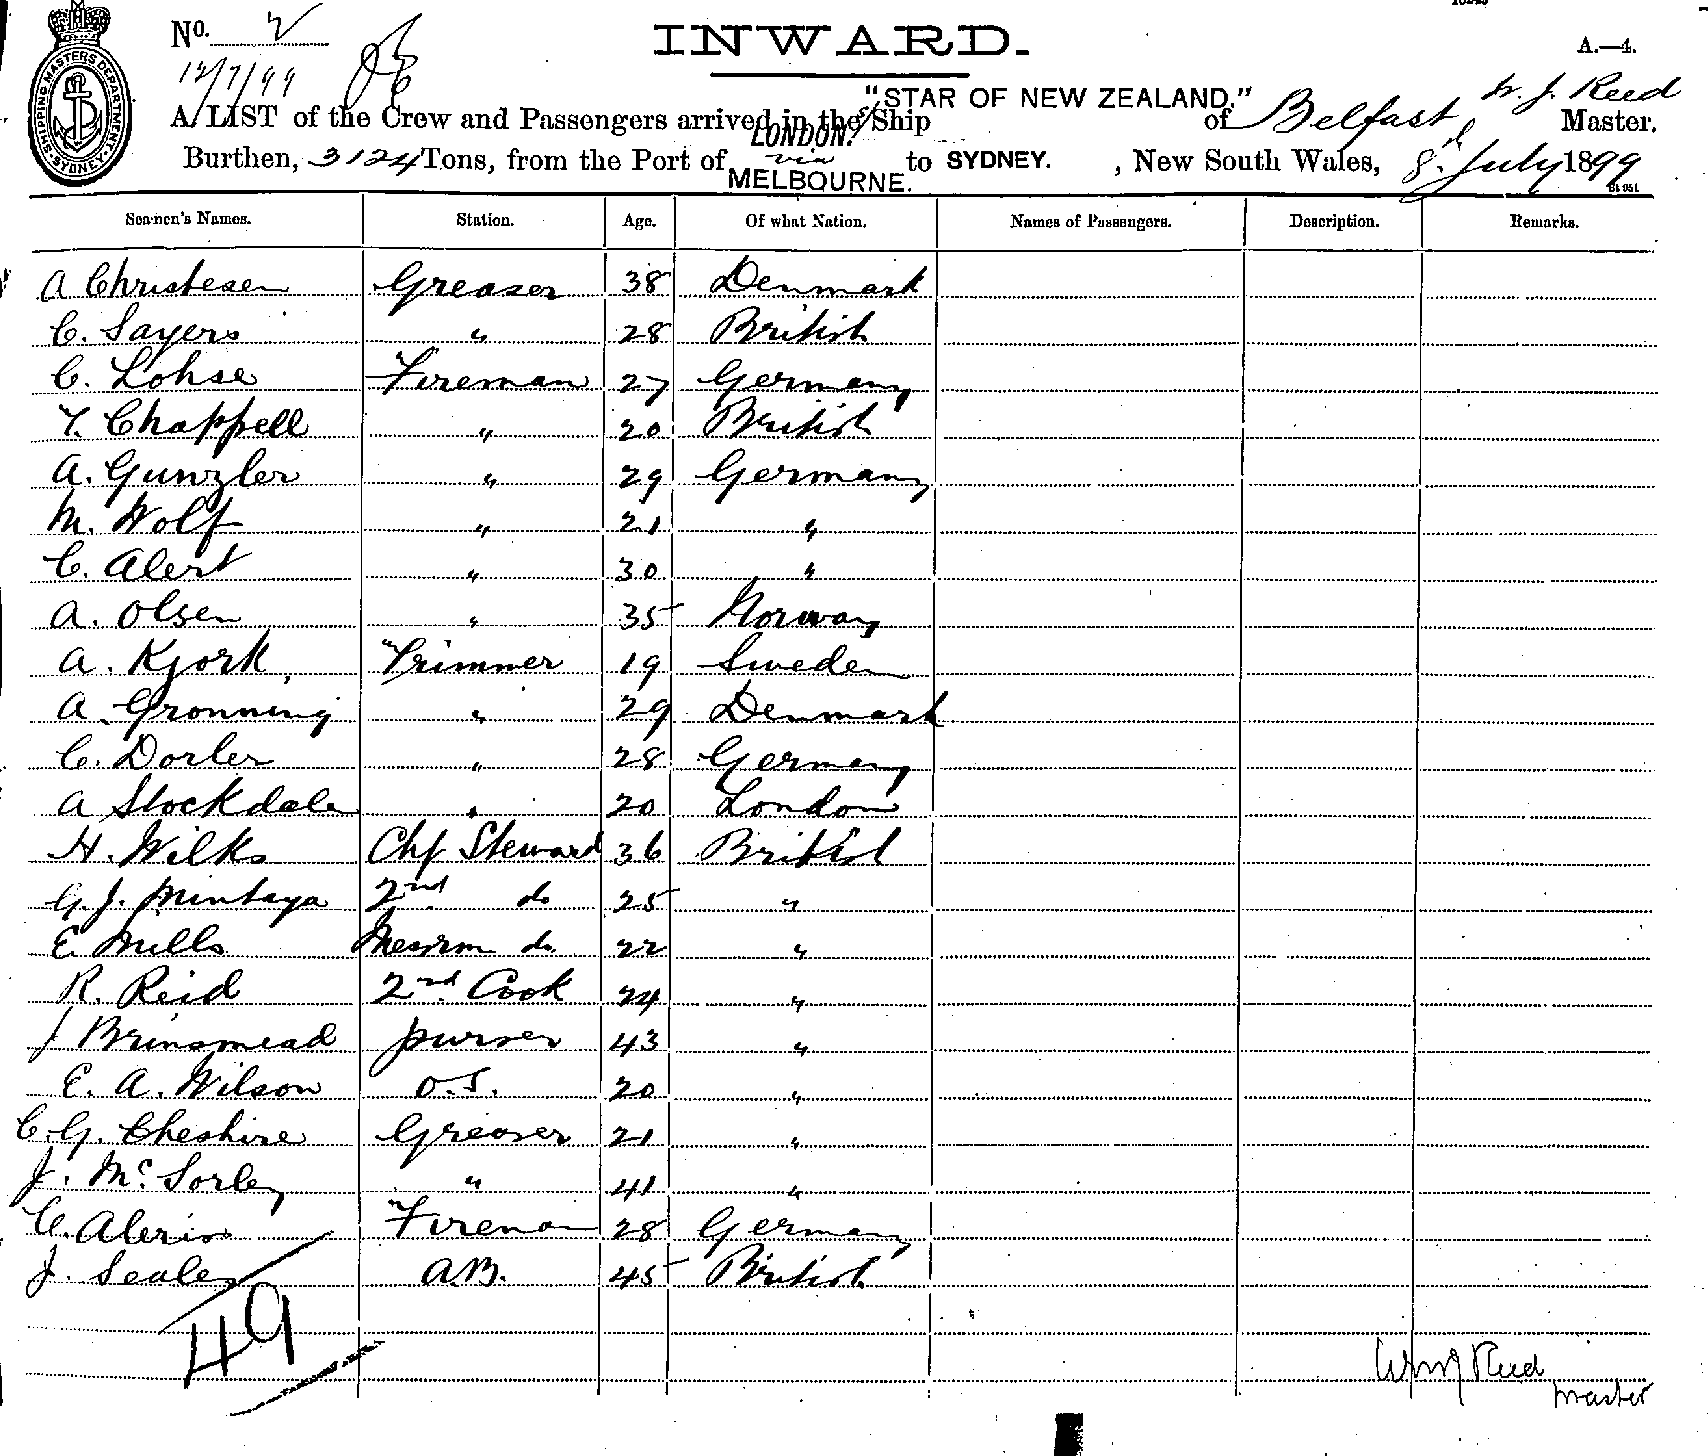 No. 2
INWARD.
A.—4.
12/7/99
SHIPPING MASTERS DEPARTMENT SYDNEY
"STAR OF NEW ZEALAND." W. J. Reed
A LIST of the Crew and Passengers arrived in the Ship of Belfast Master.
LONDON.
Burthen, 3124 Tons, from the Port of via to SYDNEY. , New South Wales, 8th July 1899
MELBOURNE.
Seamen's Names. Station. Age. Of what Nation. Names of Passengers. Description. Remarks.
A Christesen Greaser 38 Denmark
C. Sayers " 28 British
C. Lohse Fireman 27 Germany
T. Chappell " 20 British
A. Gunzler " 29 Germany
M. Wolf " 21 "
C. Alert " 30 "
A. Olsen " 35 Norway
A. Kjork, Trimmer 19 Sweden
A. Gronning " 29 Denmark
C. Dorler " 28 Germany
A Stockdale " 20 London
H. Wilks Chf Steward 36 British
G. J. Mintaya 2nd do 25 "
E. Mills Messrm do. 22 "
R. Reid 2nd Cook 24 "
J Brinsmead purser 43 "
E. A. Wilson O.S. 20 "
C. G. Cheshire Greaser 21 "
J. McSorley " 41 "
C. Alerin Fireman 28 Germany
J. Seales A.B. 45 British
49
Wm J Reed
Master